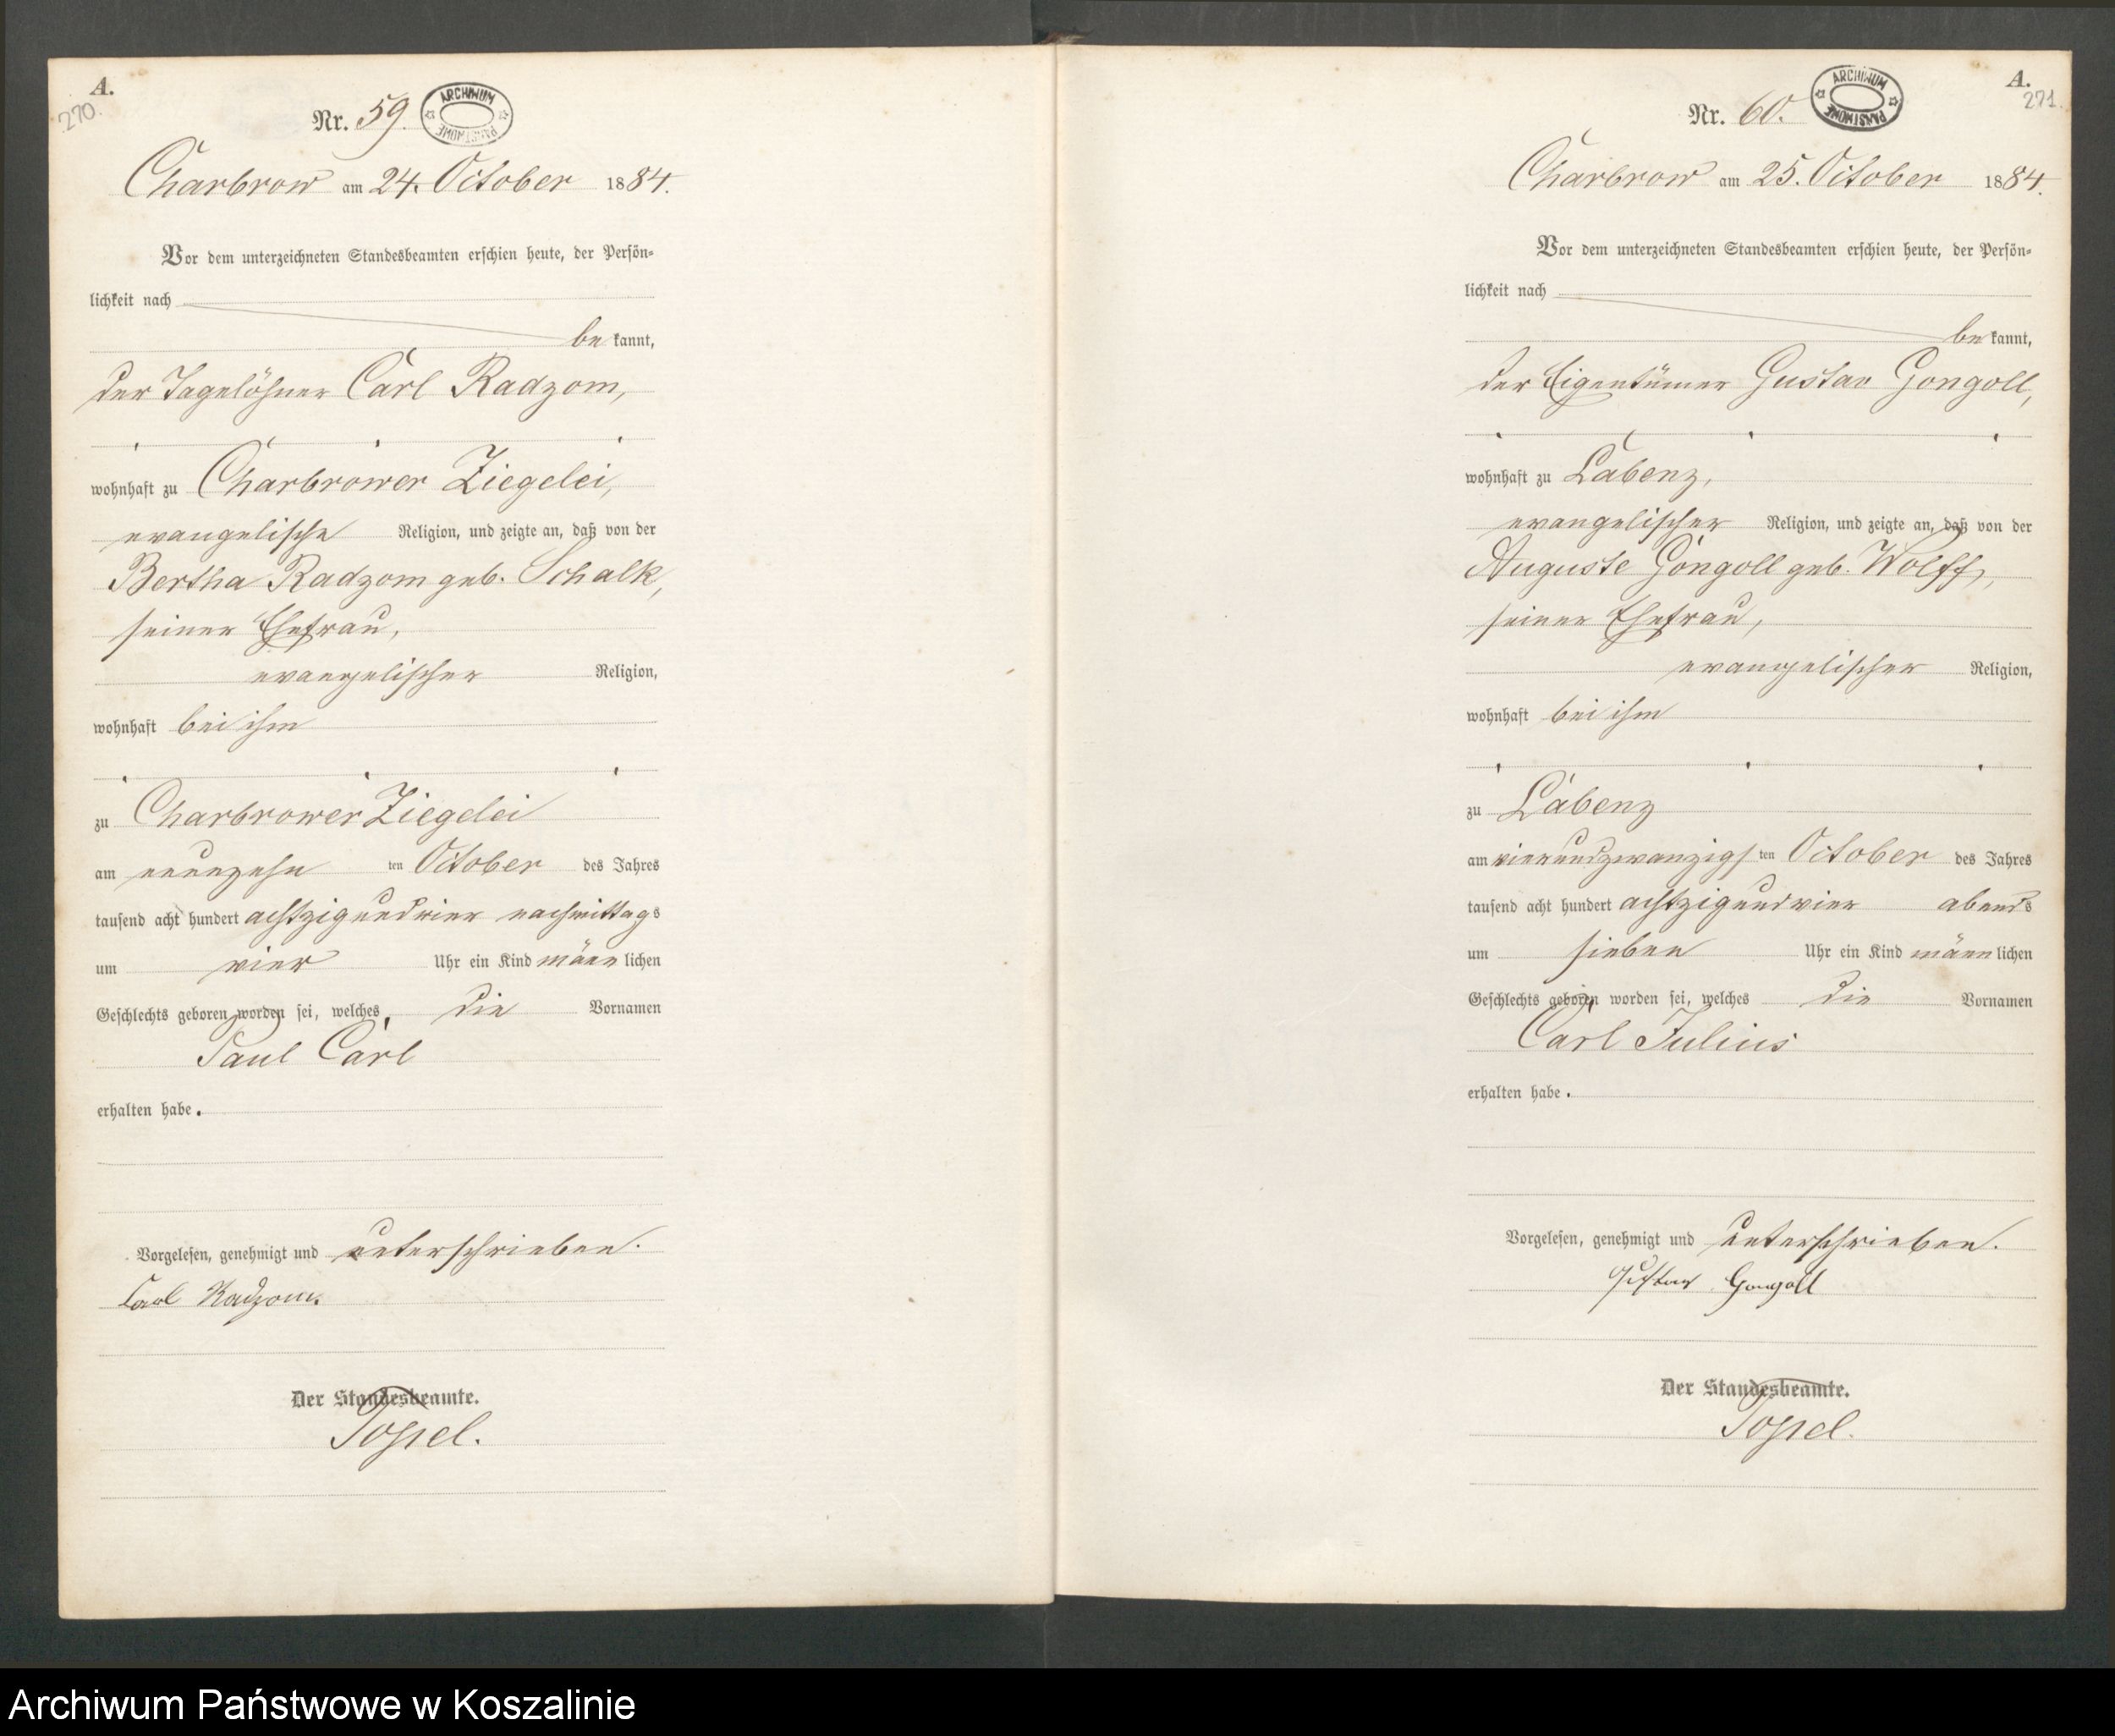 A.
270.
Nr. 59.
ARCHIWUM PAŃSTWOWE
Charbrow am 24. October 1884.
Vor dem unterzeichneten Standesbeamten erschien heute, der Persön-
lichkeit nach
be kannt,
der Tagelöhner Carl Radzom,
wohnhaft zu Charbrower Ziegelei,
evangelische Religion, und zeigte an, daß von der
Bertha Radzom geb. Schalk,
seiner Ehefrau,
evangelischer Religion,
wohnhaft bei ihm
zu Charbrower Ziegelei
am neunzehn ten October des Jahres
tausend acht hundert achtzig und vier nachmittags
um vier Uhr ein Kind männ lichen
Geschlechts geboren worden sei, welches die Vornamen
Paul Carl
erhalten habe.
Vorgelesen, genehmigt und unterschrieben.
Carl Radzom.
Der Standesbeamte.
A.
271.
Nr. 60.
ARCHIWUM PAŃSTWOWE
Charbrow am 25. October 1884.
Vor dem unterzeichneten Standesbeamten erschien heute, der Persön-
lichkeit nach
be kannt,
der Eigentümer Gustav Gongoll,
wohnhaft zu Labenz,
evangelischer Religion, und zeigte an, daß von der
Auguste Gongoll geb. Wolff,
seiner Ehefrau,
evangelischer Religion,
wohnhaft bei ihm
zu Labenz
am vierundzwanzigs ten October des Jahres
tausend acht hundert achtzig und vier abends
um sieben Uhr ein Kind männ lichen
Geschlechts geboren worden sei, welches die Vornamen
Carl Julius
erhalten habe.
Vorgelesen, genehmigt und unterschrieben.
Gustav Gongoll
Der Standesbeamte.
Archiwum Państwowe w Koszalinie